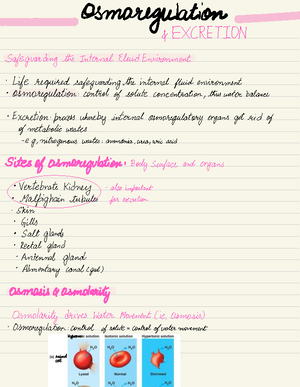 Osmoregulation
& EXCRETION
Safeguarding the Internal Fluid Environment
· Life required safeguarding the internal fluid environment
· Osmoregulation: control of solute concentration, thus water balance
· Excretion: process whereby internal osmoregulatory organs get rid of
of metabolic wastes
- e.g. nitrogenous wastes: ammonia, urea, uric acid
Sites of Osmoregulation: Body Surface and organs
• Vertebrate Kidney - also important
• Malpighain tubules for excretion
· Skin
· Gills
• Salt glands
· Rectal gland
· Antennal gland
· Alimentary canal (gut)
Osmosis & Osmolarity
Osmolarity drives Water Movement (i.e. Osmosis)
· Osmoregulation: control of solute = control of water movement
Hypotonic solution Isotonic solution Hypertonic solution
H₂O H₂O H₂O H₂O H₂O
animal cell
Lysed Normal Shriveled
H₂O H₂O H₂O H₂O